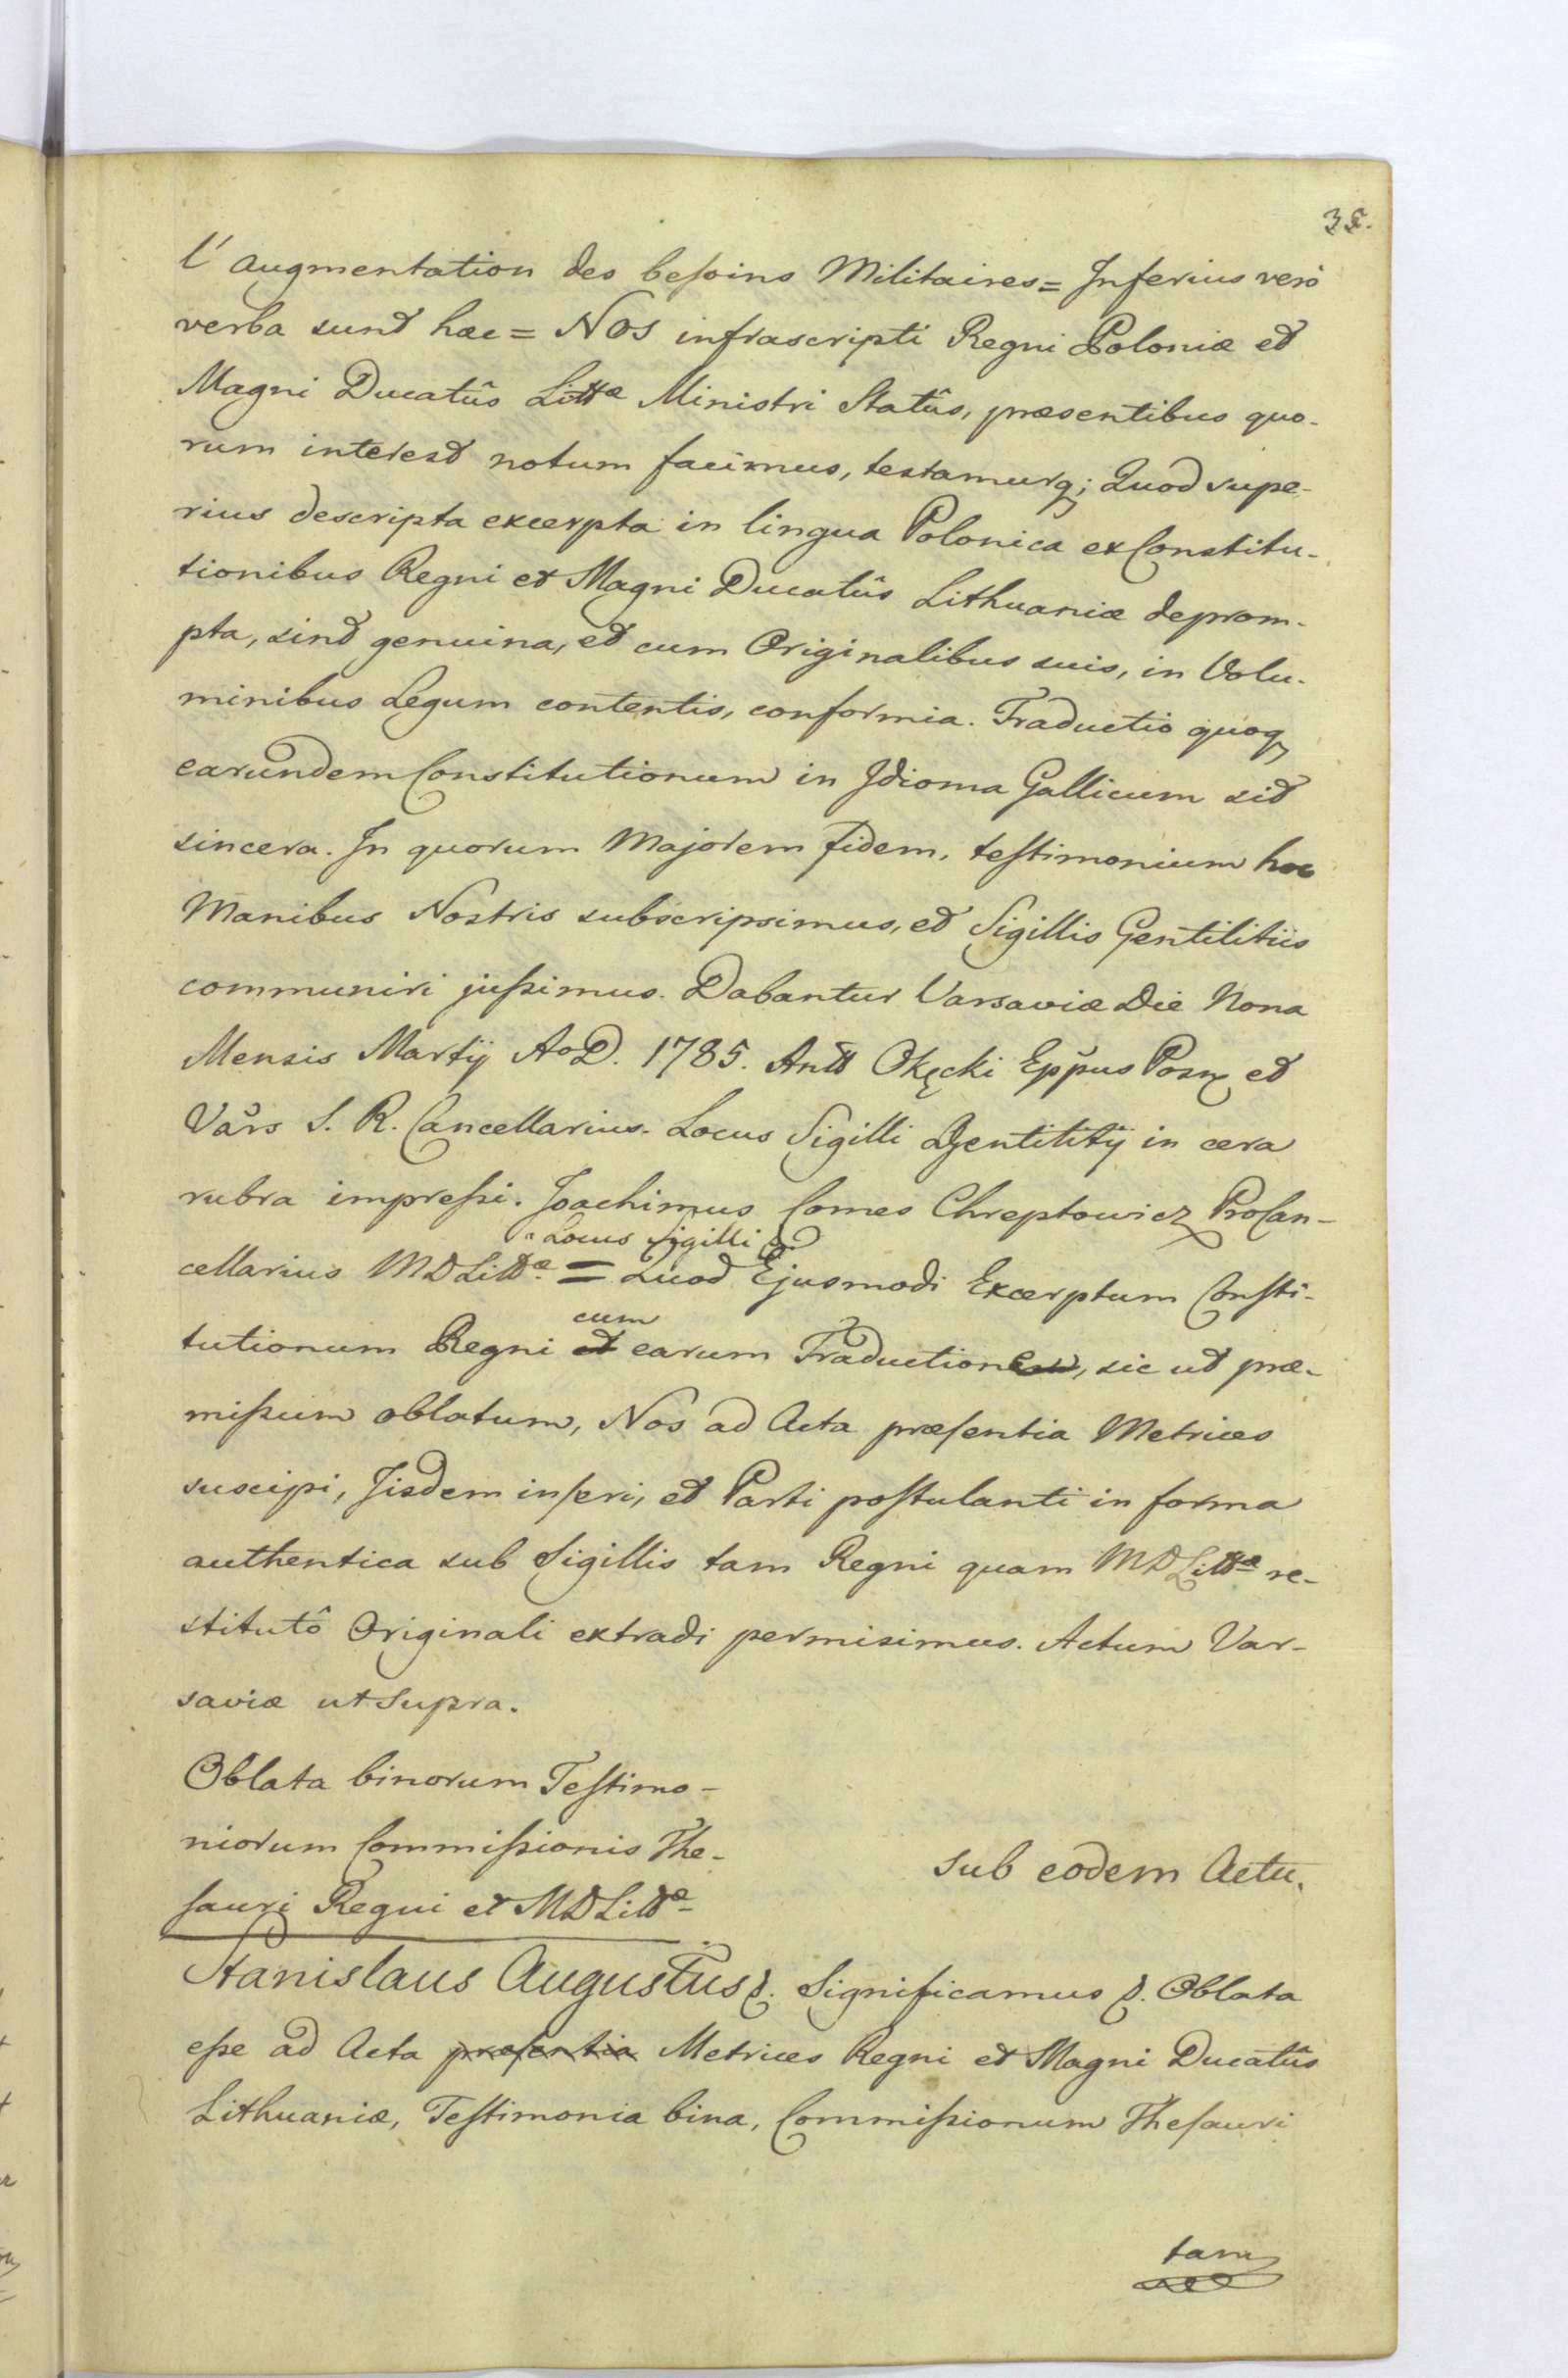 35.
l'augmentation des besoins Militaires = Inferius verò
verba sunt hæc = Nos infrascripti Regni Poloniæ et
Magni Ducatûs Littæ Ministri Statûs, præsentibus quo-
rum interest notum facimus, testamurq; Quod supe-
rius descripta excerpta in lingua Polonica ex Constitu-
tionibus Regni et Magni Ducatûs Lithuaniæ deprom-
pta, sint genuina, et cum Originalibus suis, in Volu-
minibus Legum contentis, conformia. Traductio quoq
earundem Constitutionum in Idioma Gallicum sit
sincera. In quorum Majorem fidem, testimonium hoc
Manibus Nostris subscripsimus, et Sigillis Gentilitiis
communiri jussimus. Dabantur Varsaviæ Die Nona
Mensis Martij AoD. 1785. Antt Okęcki Eppus Posn et
Vars S. R. Cancellarius. Locus Sigilli Gentilitij in cera
rubra impressi. Joachimus Comes Chreptowicz ProCan-
Locus Sigilli
cellarius MDLittæ. = Quod Ejusmodi Excerptum Consti-
cum
tutionum Regni et earum Traductionem, sic ut præ-
missum oblatum, Nos ad Acta præsentia Metrices
suscipi, Iisdem inseri, et Parti postulanti in forma
authentica sub Sigillis tam Regni quam MDLittæ re-
stitutô Originali extradi permisimus. Actum Var-
saviæ ut Supra.
Oblata binorum Testimo-
niorum Commissionis The-
sauri Regni et MDLittæ
sub eodem Actu.
Stanislaus Augustus &. Significamus &. Oblata
esse ad Acta præsentia Metrices Regni et Magni Ducatûs
Lithuaniæ, Testimonia bina, Commissionum Thesauri
tam